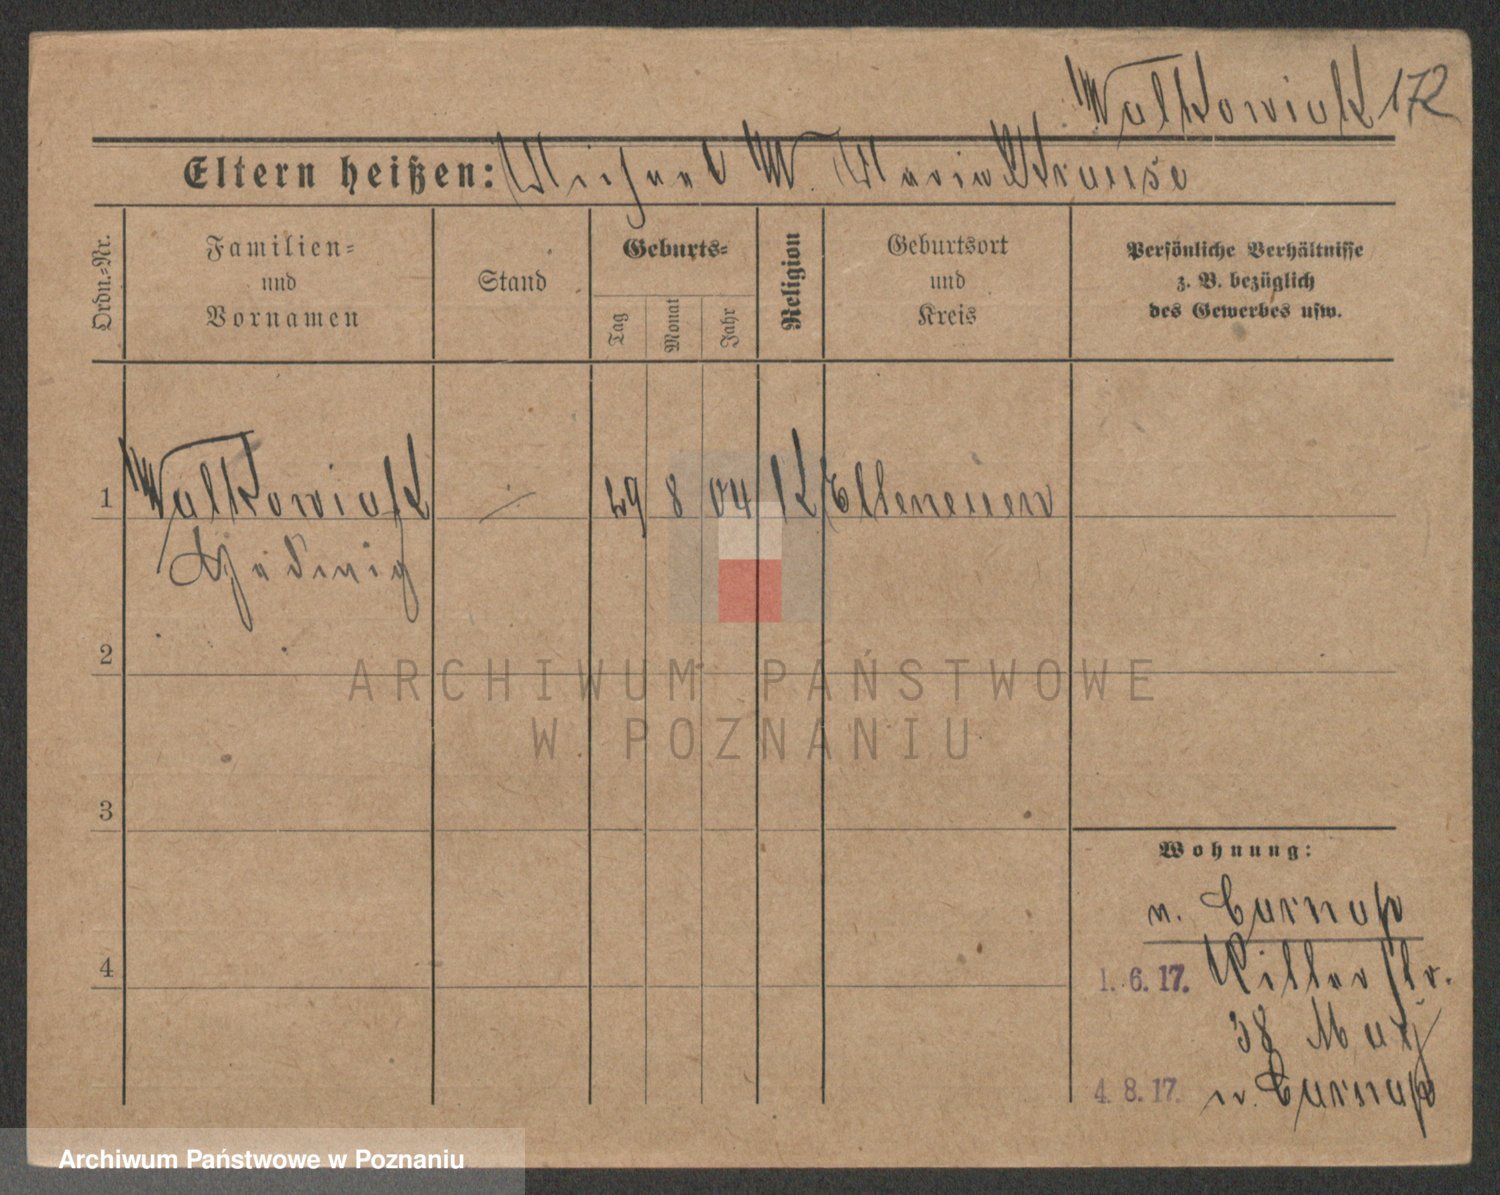 Walkowiak 172
Eltern heißen: Michael W. Maria Krause
Ordn.=Nr.
Familien=
und
Vornamen
Stand
Geburts=
Tag
Monat
Jahr
Religion
Geburtsort
und
Kreis
Persönliche Verhältnisse
z. B. bezüglich
des Gewerbes usw.
1 Walkowiak 29 8 04 K
Hedwig
2
3
4
Wohnung:
n.
1. 6. 17. Ritterstr.
38
4. 8. 17. n.
ARCHIWUM PAŃSTWOWE
W POZNANIU
Archiwum Państwowe w Poznaniu